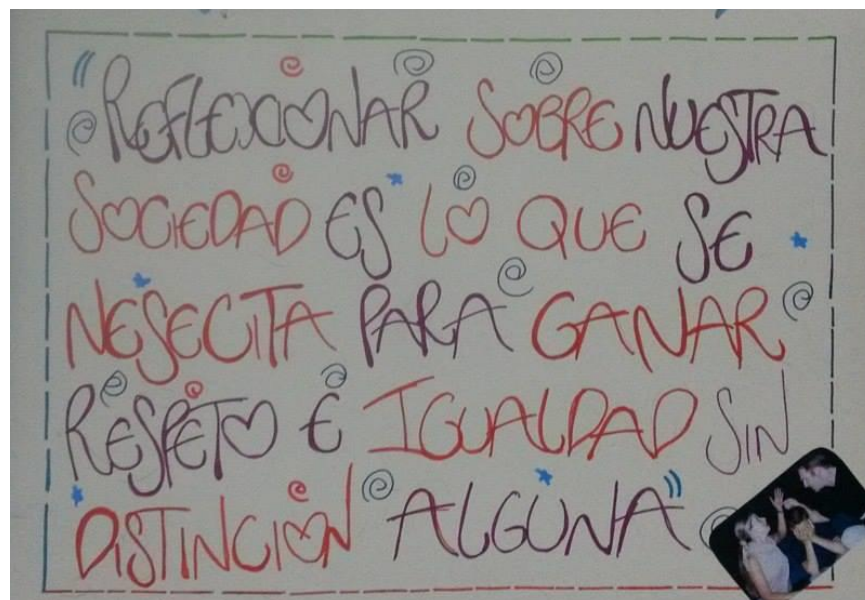 "REFLEXIONAR SOBRE NUESTRA
SOCIEDAD ES LO QUE SE
NESECITA PARA GANAR
RESPETO E IGUALDAD SIN
DISTINCIÓN ALGUNA"